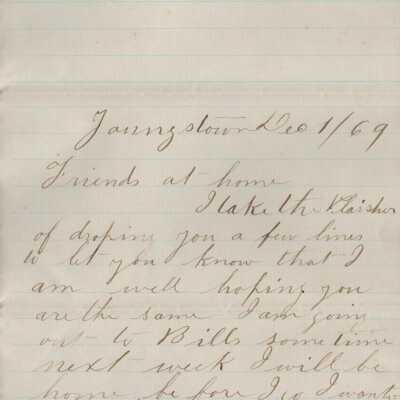 Youngstown Dec 1/69
Friends at home
I take the Plaisher
of droping you a few lines
to let you know that I
am well hoping you
are the same I am going
out to Bills some time
next week I will be
home before I go I want